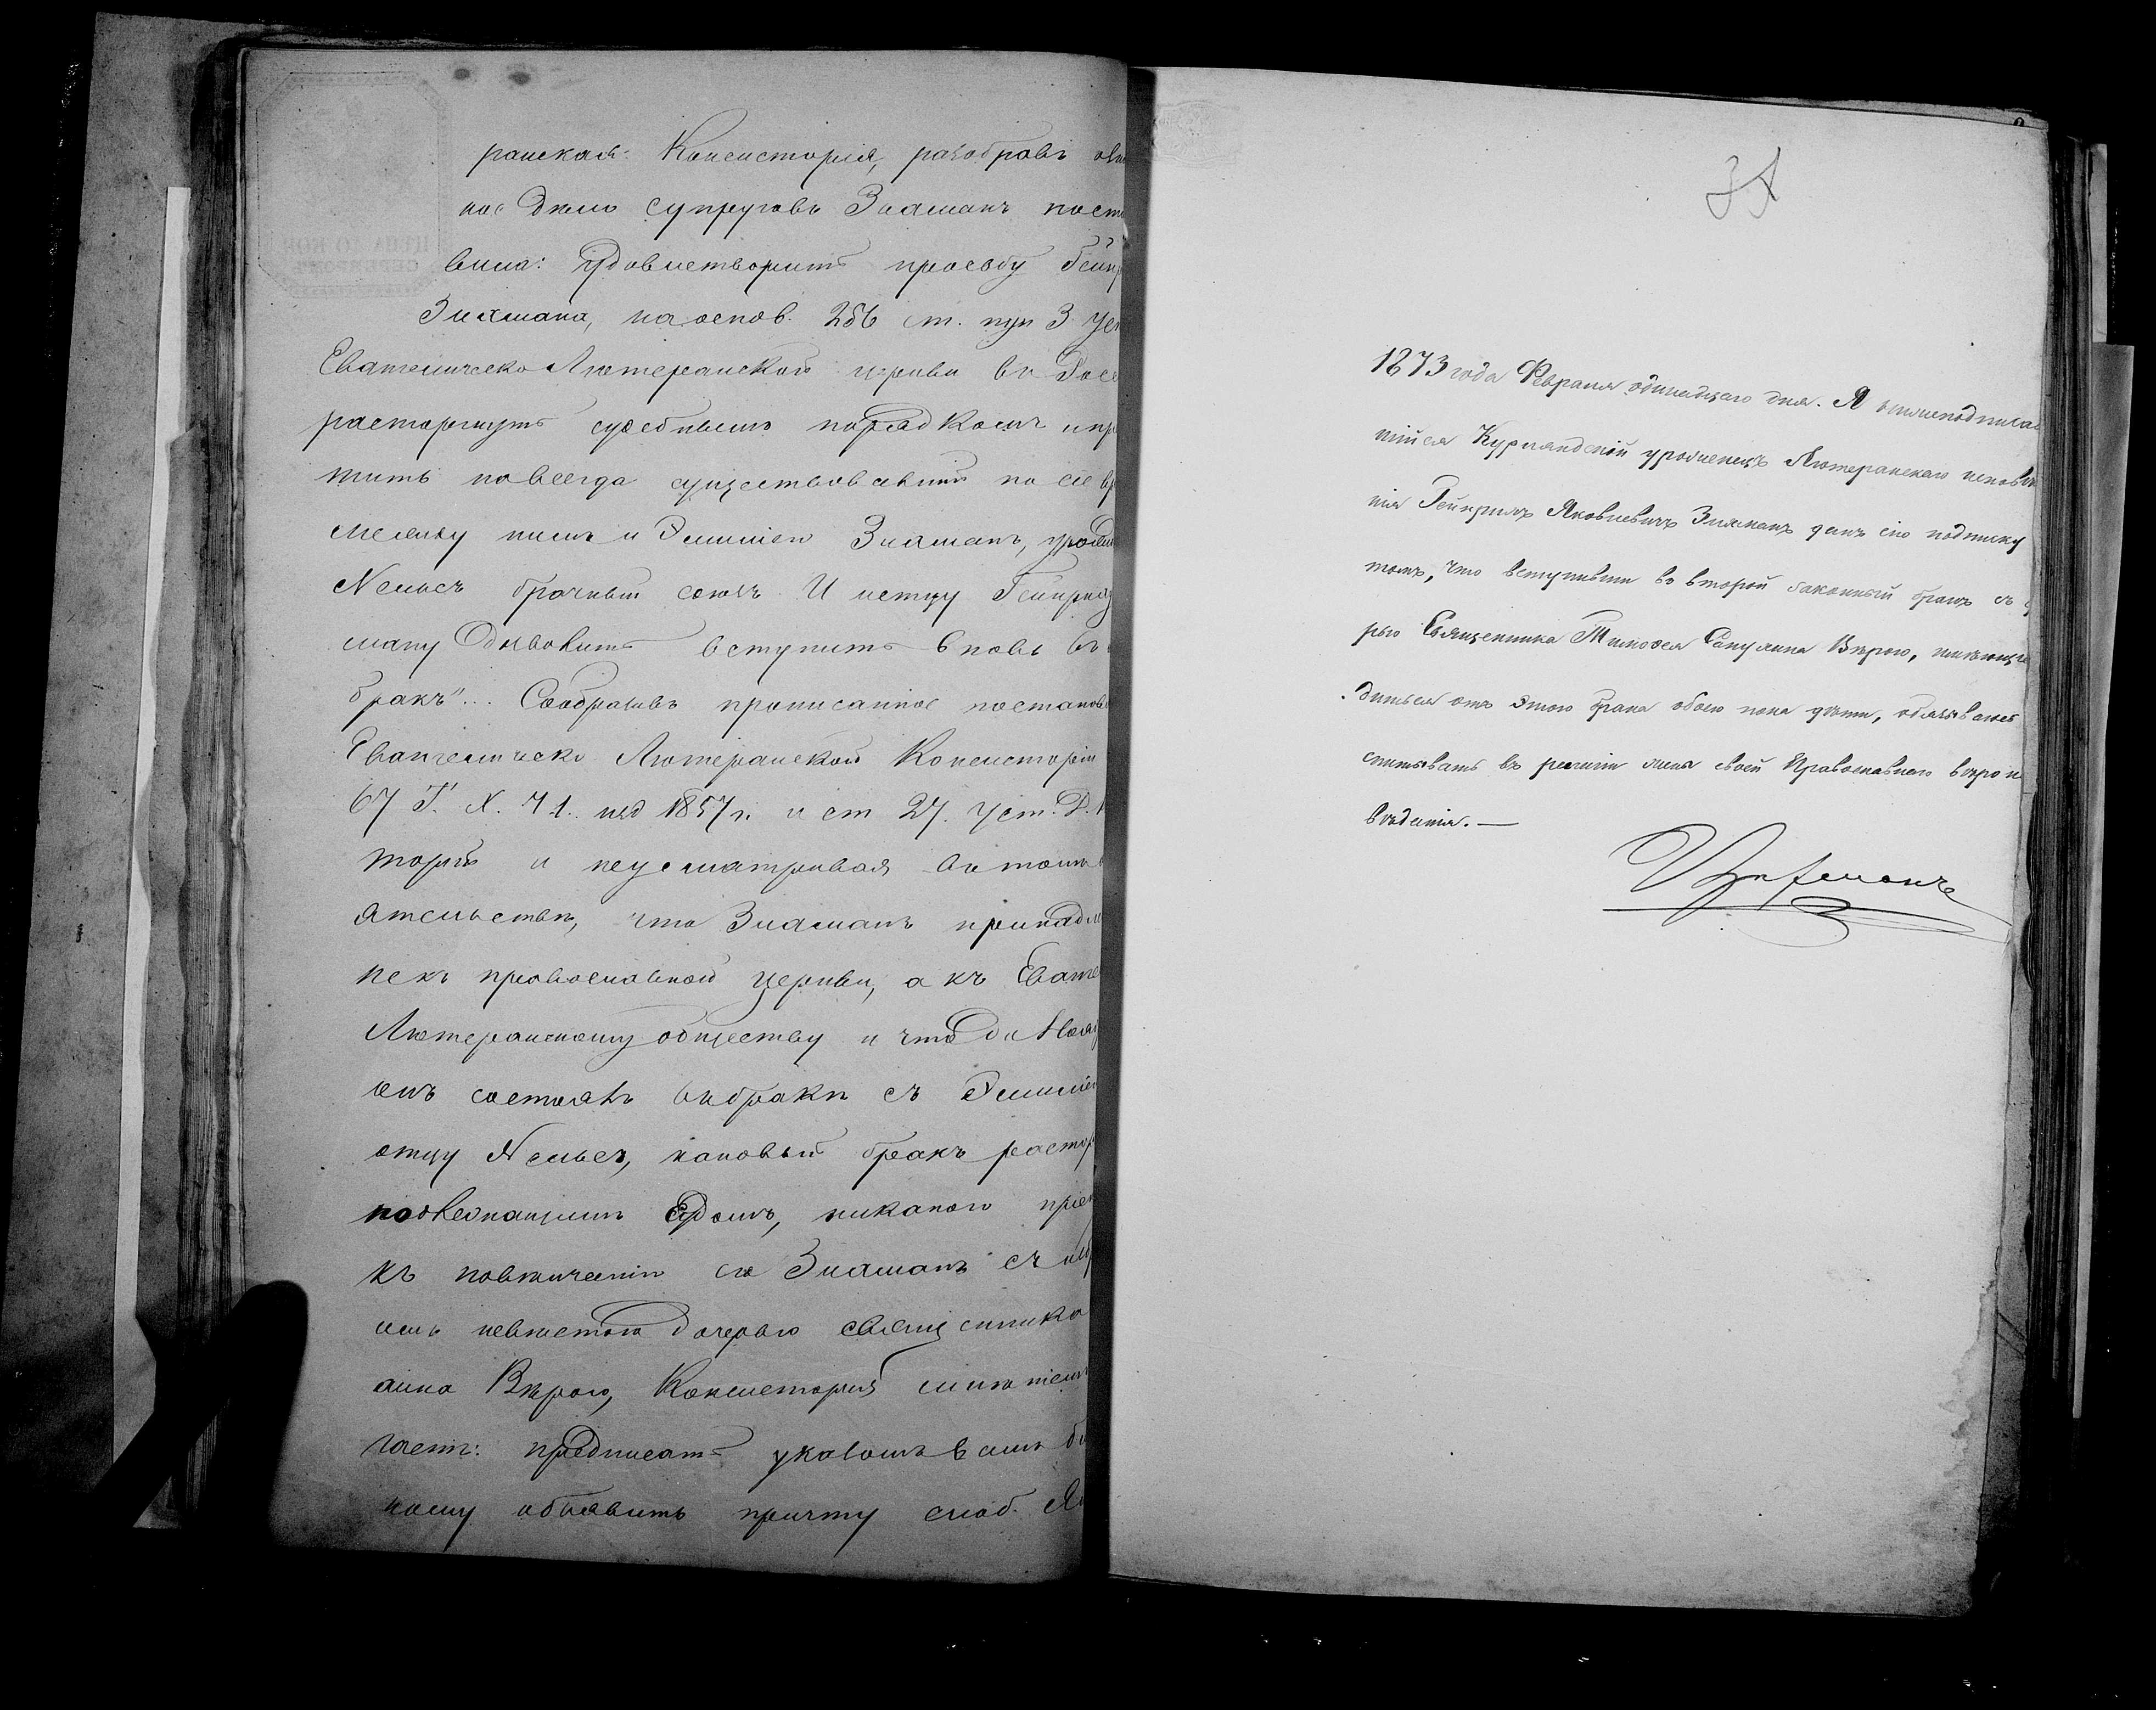 ранская Консисторія, разобравъ
ное Дѣло супруговъ Зилманъ пост
вила: Удовлетворить просьбу Гейнр
Зилмана, на основ. 256 ст. пун 3 Уст
Евангелическо Лютеранской церкви въ Росс
расторгнуть судебнымъ порядкомъ и пр
тить навсегда существовавшій по сіе вр
между нимъ и Эмиліею Зилманъ, урожд
Немьсъ брачный союзъ. И истцу Гейнрих
ману Дозволить вступить вновь въ
бракъ"... Сообразивъ прописанное постанов
Евангелическо Лютеранской Консисторіи
67 Т. X. Ч 1. изд 1857 г. и ст 27. Уст. Д.
торій и неусматривая въ томъ
ятельствѣ, что Зилманъ принадл
не къ православной церкви, а къ Еванге
Лютеранскому обществу и что
онъ состоялъ въ бракѣ съ Эмиліе
отцу Немьсъ, каковый бракъ растор
надлежащимъ Судомъ, никакого преп
къ повѣнчанію его Зилманъ съ
имъ невѣстою Дочерью священника
лина Вѣрою, Консисторія
гаетъ: предписать указомъ вашему бл
ному объявить причту слоб.
31
1873 года Февраля одинадцаго дня. Я нижеподписав
шійся Курляндскій уроженецъ Лютеранскаго исповѣда
нія Гейнрихъ Яковлевичъ Зилманъ далъ сію подписку
томъ, что вступивши во второй законный бракъ съ
рью Священника Тимофея Сакулина Вѣрою, имѣющіе
диться отъ этого брака обоего пола дѣти, обязываюсь
спитывать въ религіи жены своей Православнаго вѣроис
вѣданія. —